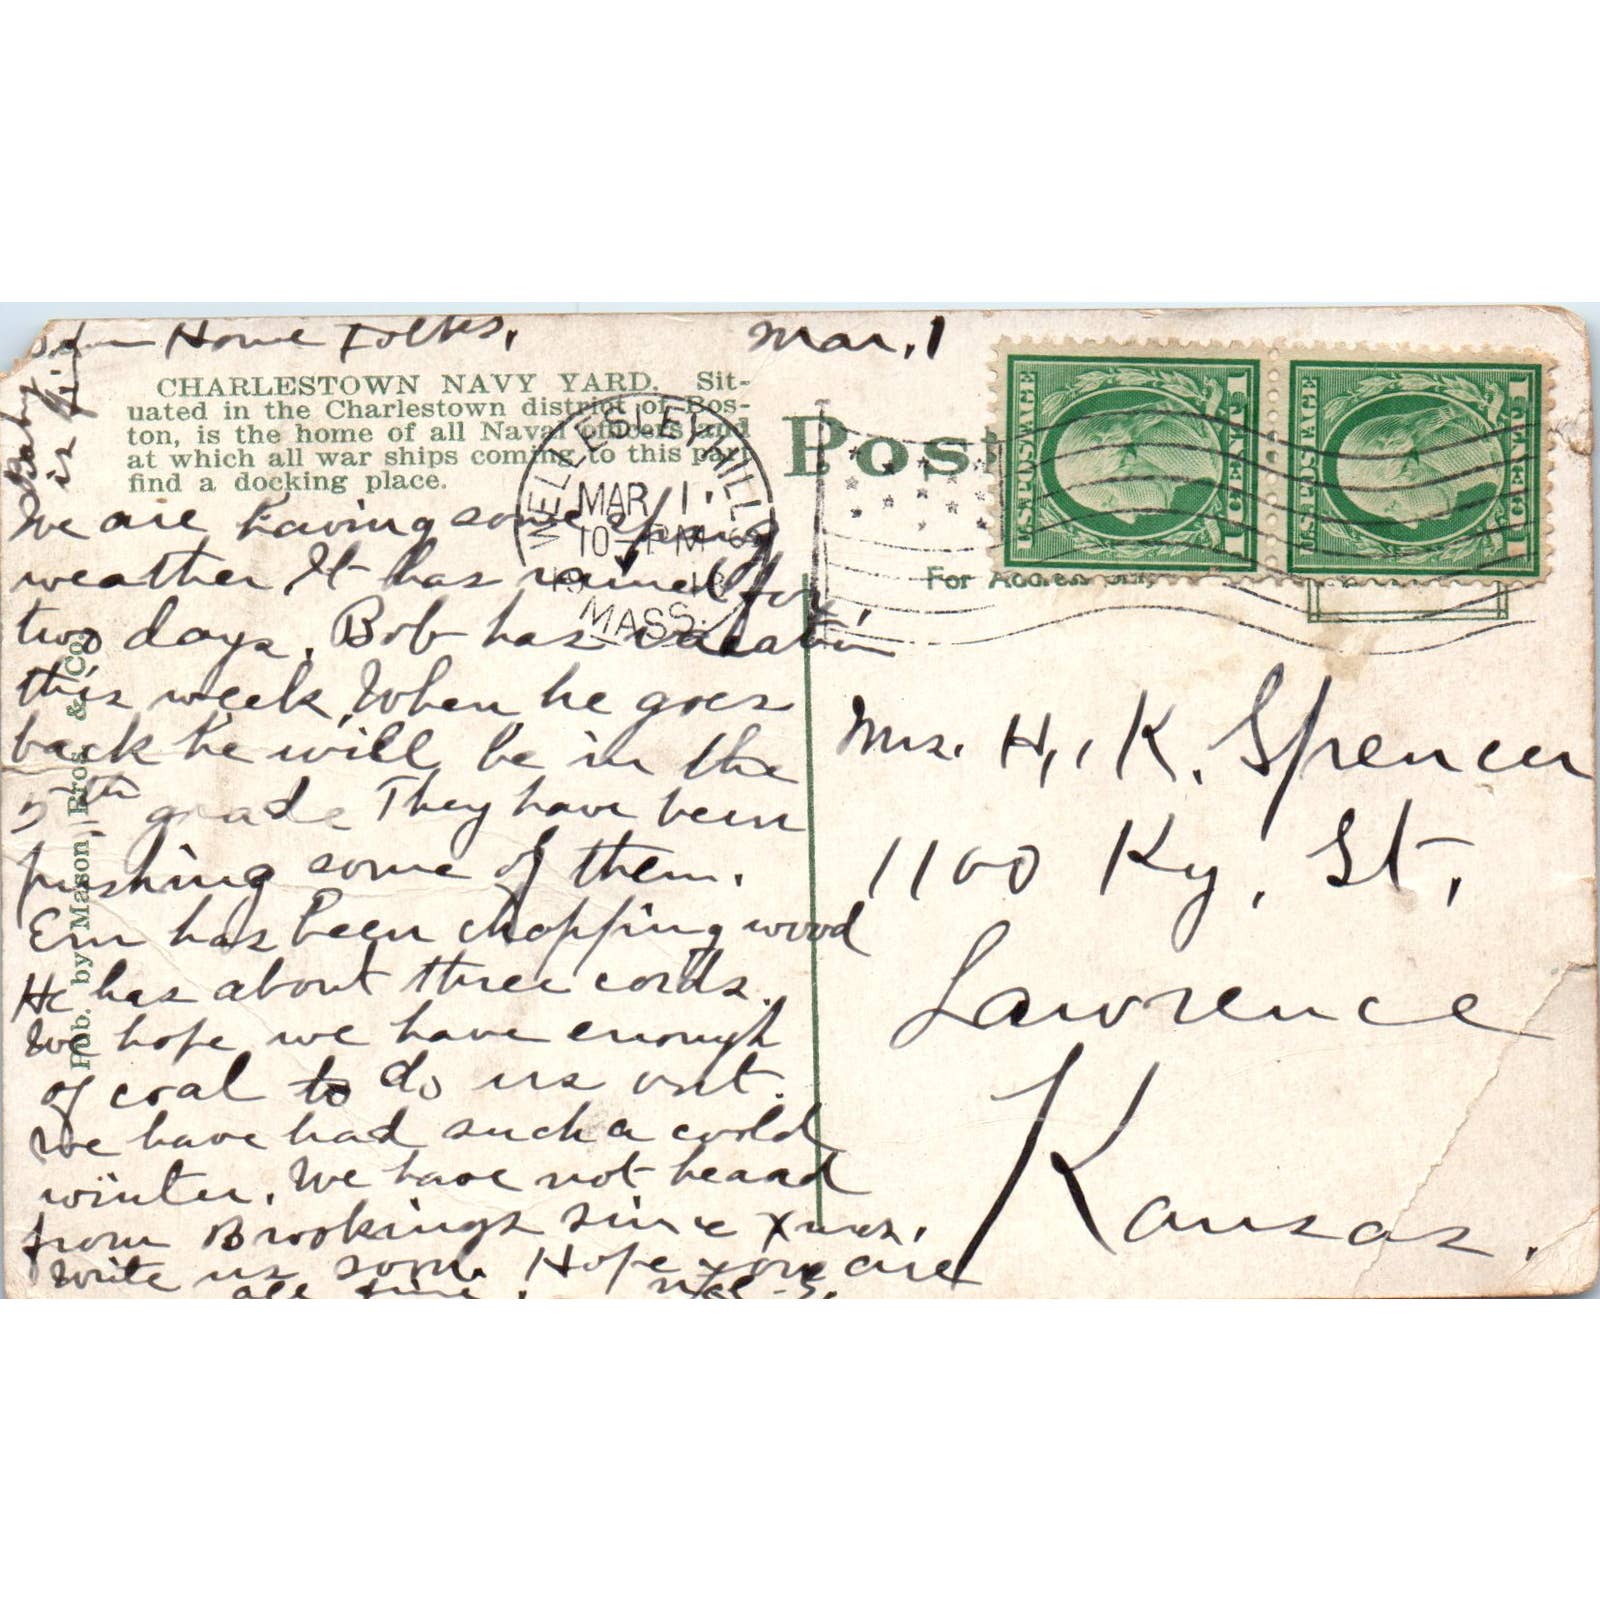 Home Folks,
Mar. 1
Baby
is
CHARLESTOWN NAVY YARD. Sit-
uated in the Charlestown district of Bos-
ton, is the home of all Naval officers and
at which all war ships coming to this part
find a docking place.
We are having some spring
weather It has rained for
two days. Bob has vacation
this week. When he goes
back he will be in the
5th grade They have been
pushing some of them.
Em has been chopping wood
He has about three cords.
We hope we have enough
of coal to do us out.
We have had such a cold
winter. We have not heard
from Brookings since Xmas.
Write us some. Hope you are
all fine.
Pub. by Mason, Bros. & Co.
WELLESLEY HILLS
MAR 1
10 PM
MASS.
Post
For Address Only
U.S. POSTAGE
1 CENT 1
U.S. POSTAGE
1 CENT 1
Mrs. H. K. Spencer
1100 Ky. St.
Lawrence
Kansas.